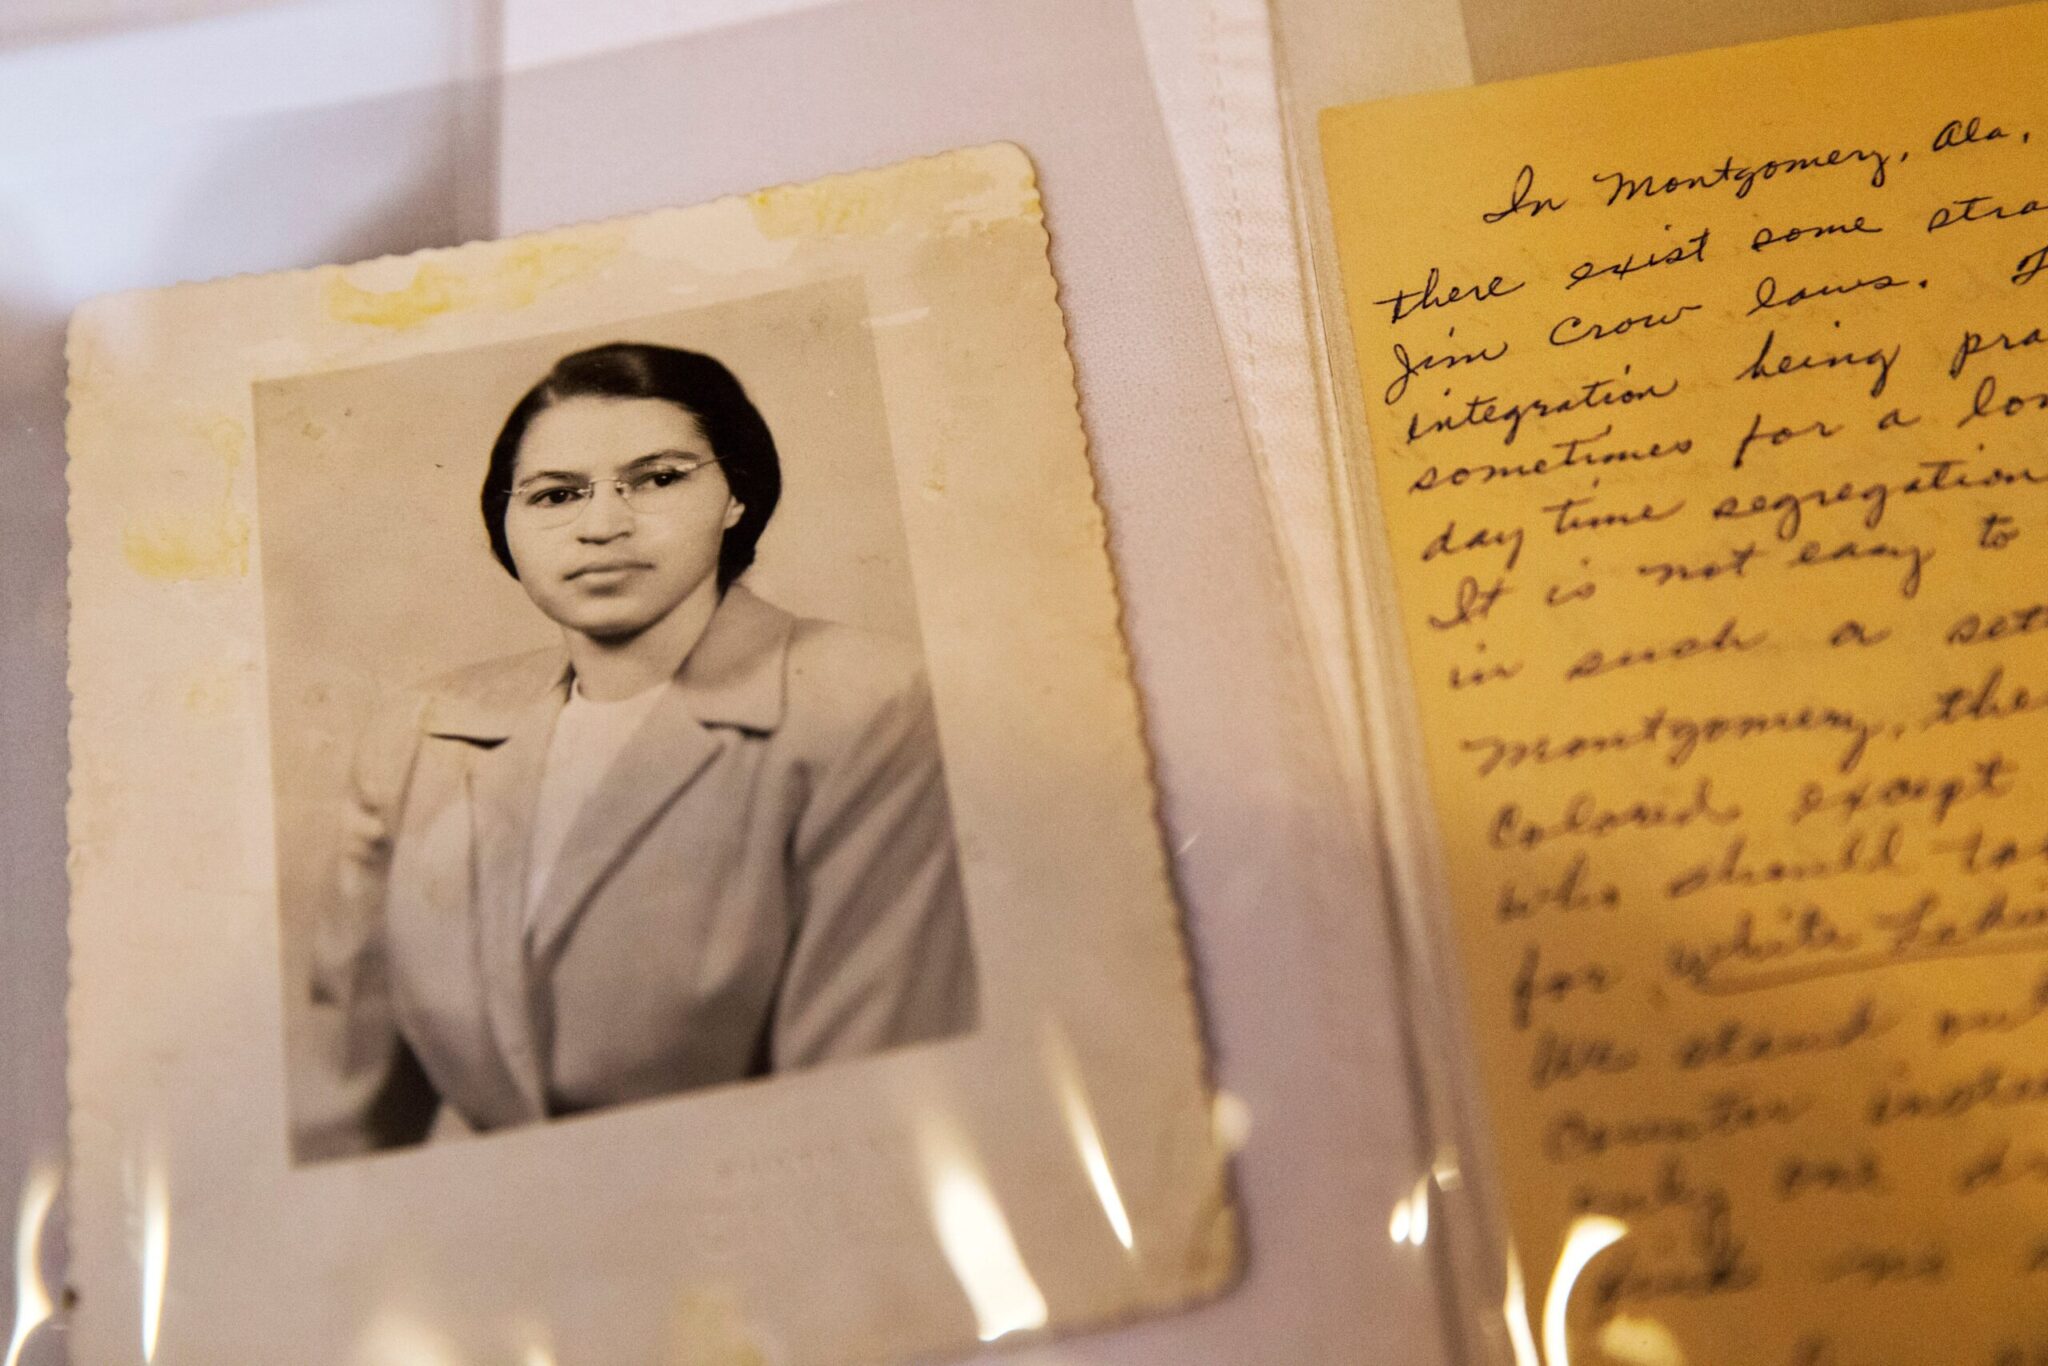 In Montgomery, Ala,
there exist some stra
Jim Crow laws.
integration being pra
sometimes for a lon
day time segregation
It is not easy to
in such a set
Montgomery, the
Colored except
who should
for white
We stand out
Counter
only one